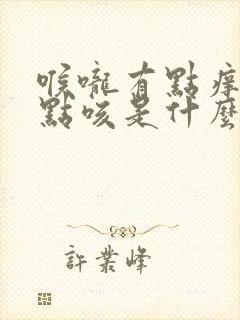 喉嚨有點痒
點咳是什麼
許業峰